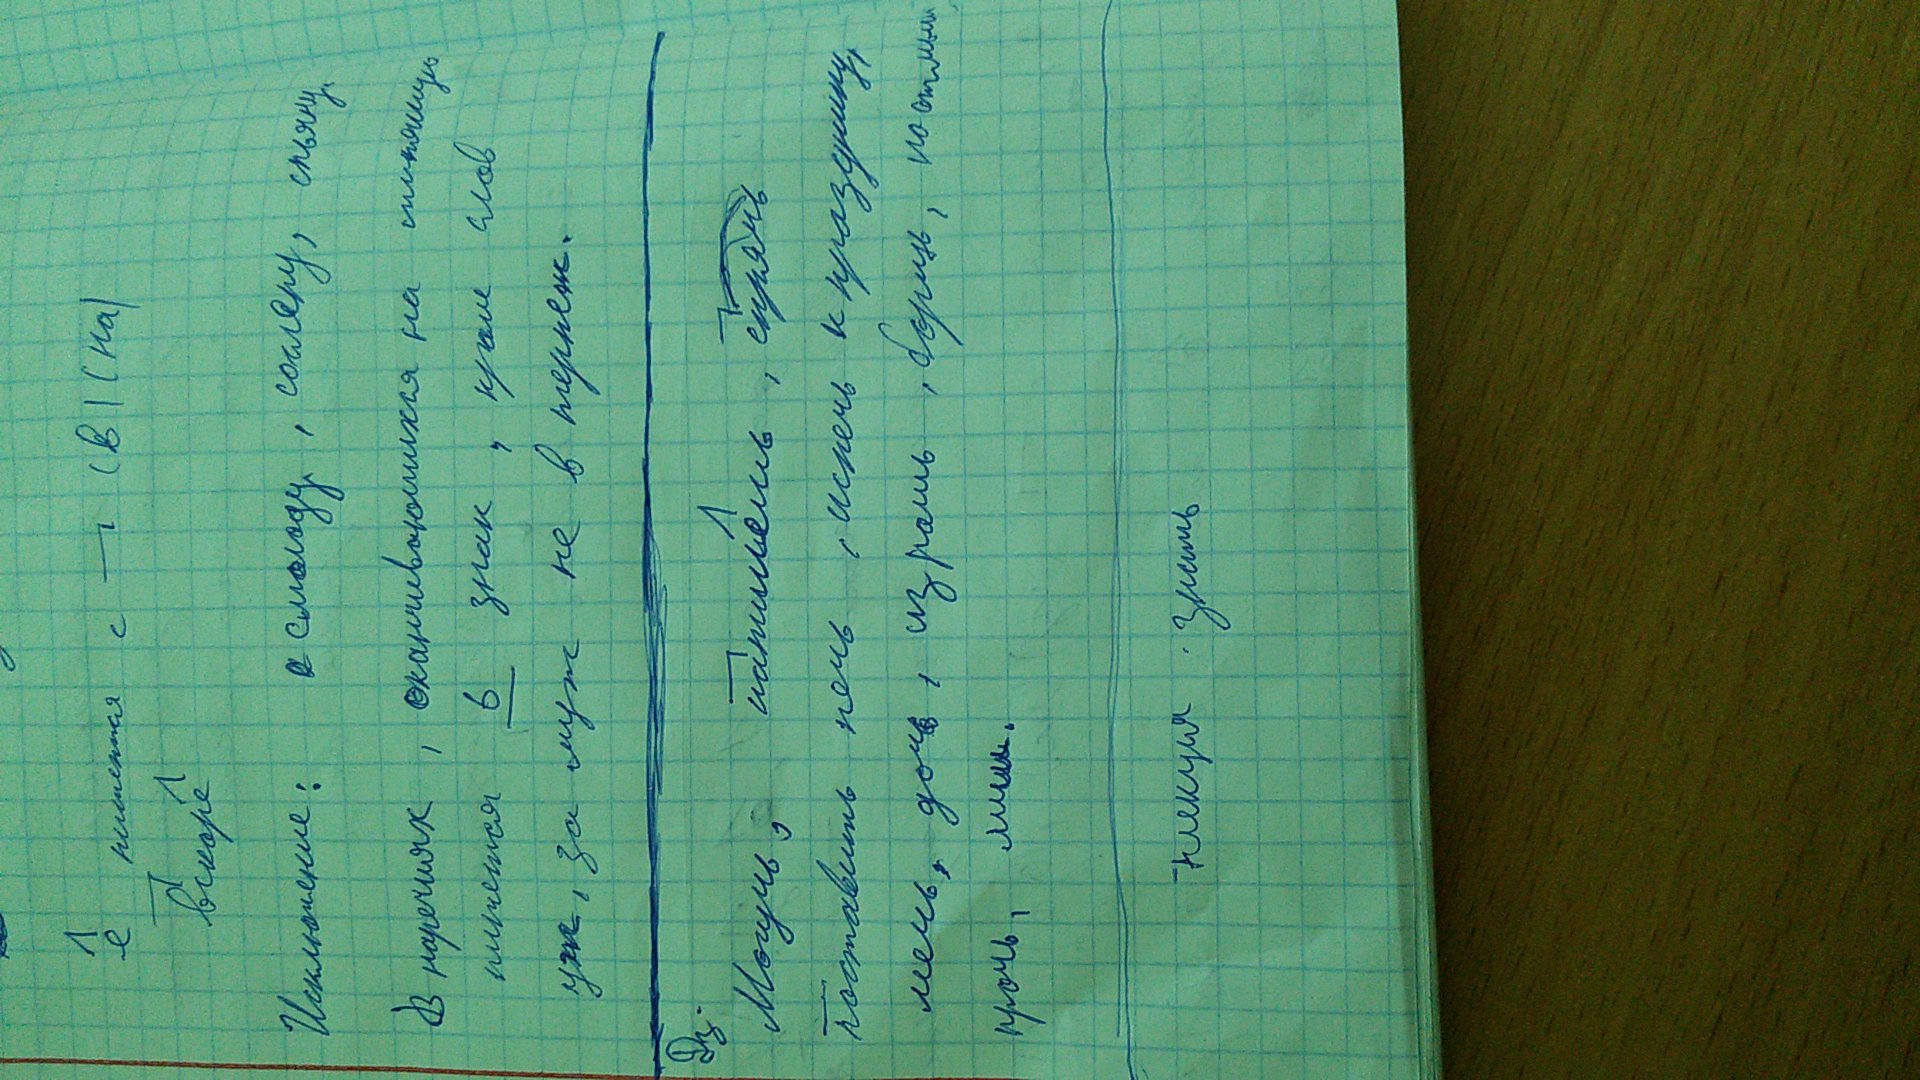 е пишется с ¬, (в) (на)
вскоре
Исключение: смолоду, сослепу, спьяну
В наречиях, оканчивающихся на шипящую
пишется ь знак, кроме слов
уж, замуж не в терпеж.
Дз.
Могуч, , спрячь
поставить печь, испечь к празднику,
меч, дочь, играешь, борщ,
прочь, мыш.
лекция. знать